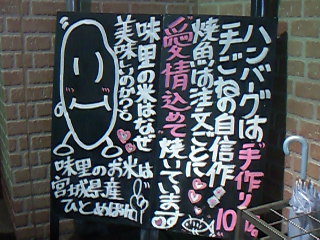 ハンバーグは手作り
手ごねの自信作
焼魚は注文ごとに
愛情込めて焼いています
味里の米はなぜ
美味いのだろう
味里のお米は
宮城県産
ひとめぼれ
10